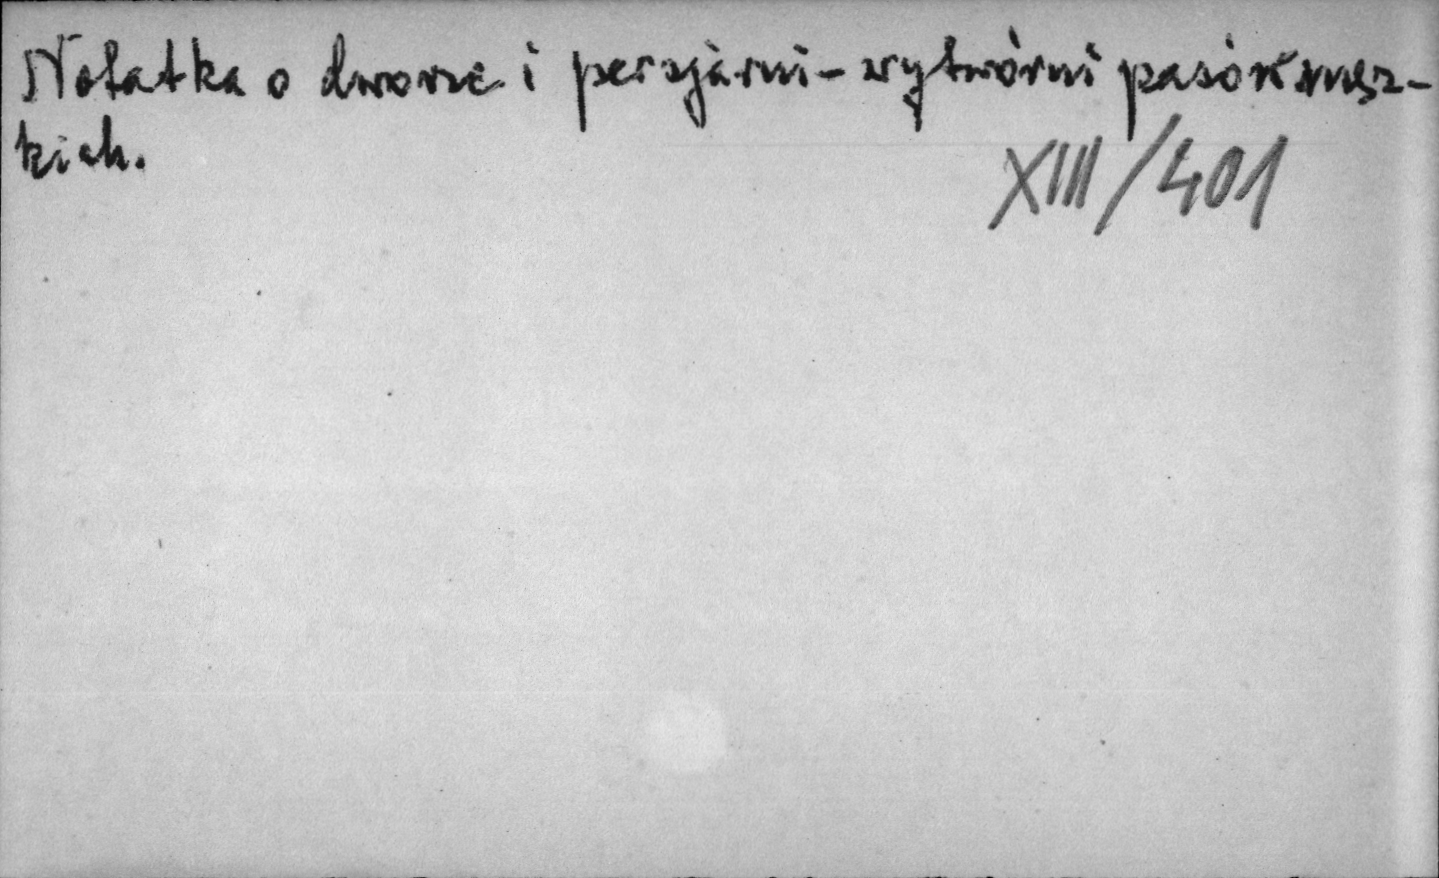 Notatka o dworze i persjarni - wytwórni pasów męsz-
kich.
XIII/401